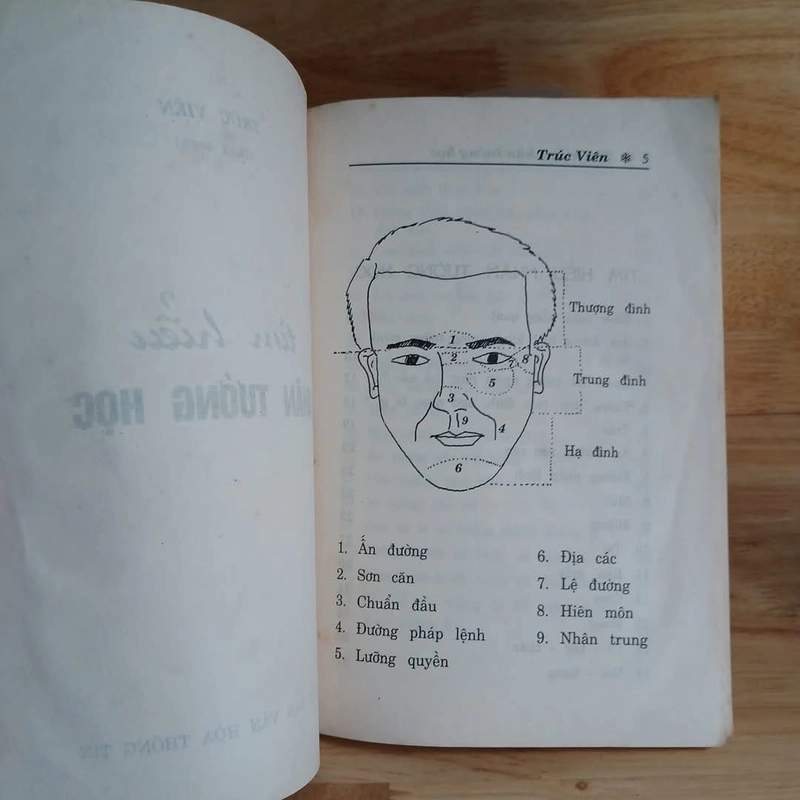 Trúc Viên ❋ 5
Thượng đình
Trung đình
Hạ đình
1
2
3
4
5
6
7
8
9
1. Ấn đường
2. Sơn căn
3. Chuẩn đầu
4. Đường pháp lệnh
5. Lưỡng quyền
6. Địa các
7. Lệ đường
8. Hiên môn
9. Nhân trung